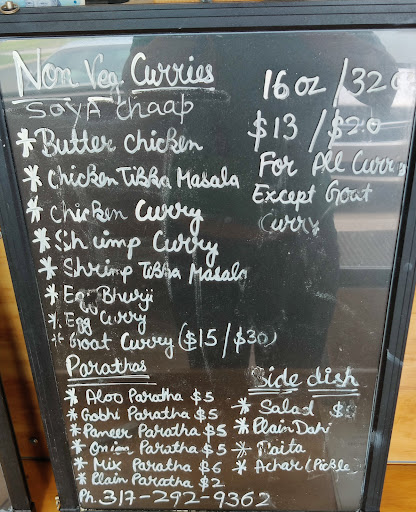 Non Veg Curries
SOYA chaap
* Butter chicken
* Chicken Tikka Masala
* Chicken Curry
* Shrimp Curry
* Shrimp Tikka Masala
* Egg Bhurji
* Egg Curry
* Goat Curry ($15/$30)
16 oz / 32
$13 / $20
For All Curr
Except Goat
Curry
Parathas
* Aloo Paratha $5
* Gobhi Paratha $5
* Paneer Paratha $5
* Onion Paratha $5
* Mix Paratha $6
* Plain Paratha $2
Side dish
* Salad
* Plain Dahi
* Raita
* Achar (Pickle)
Ph. 317-292-9362